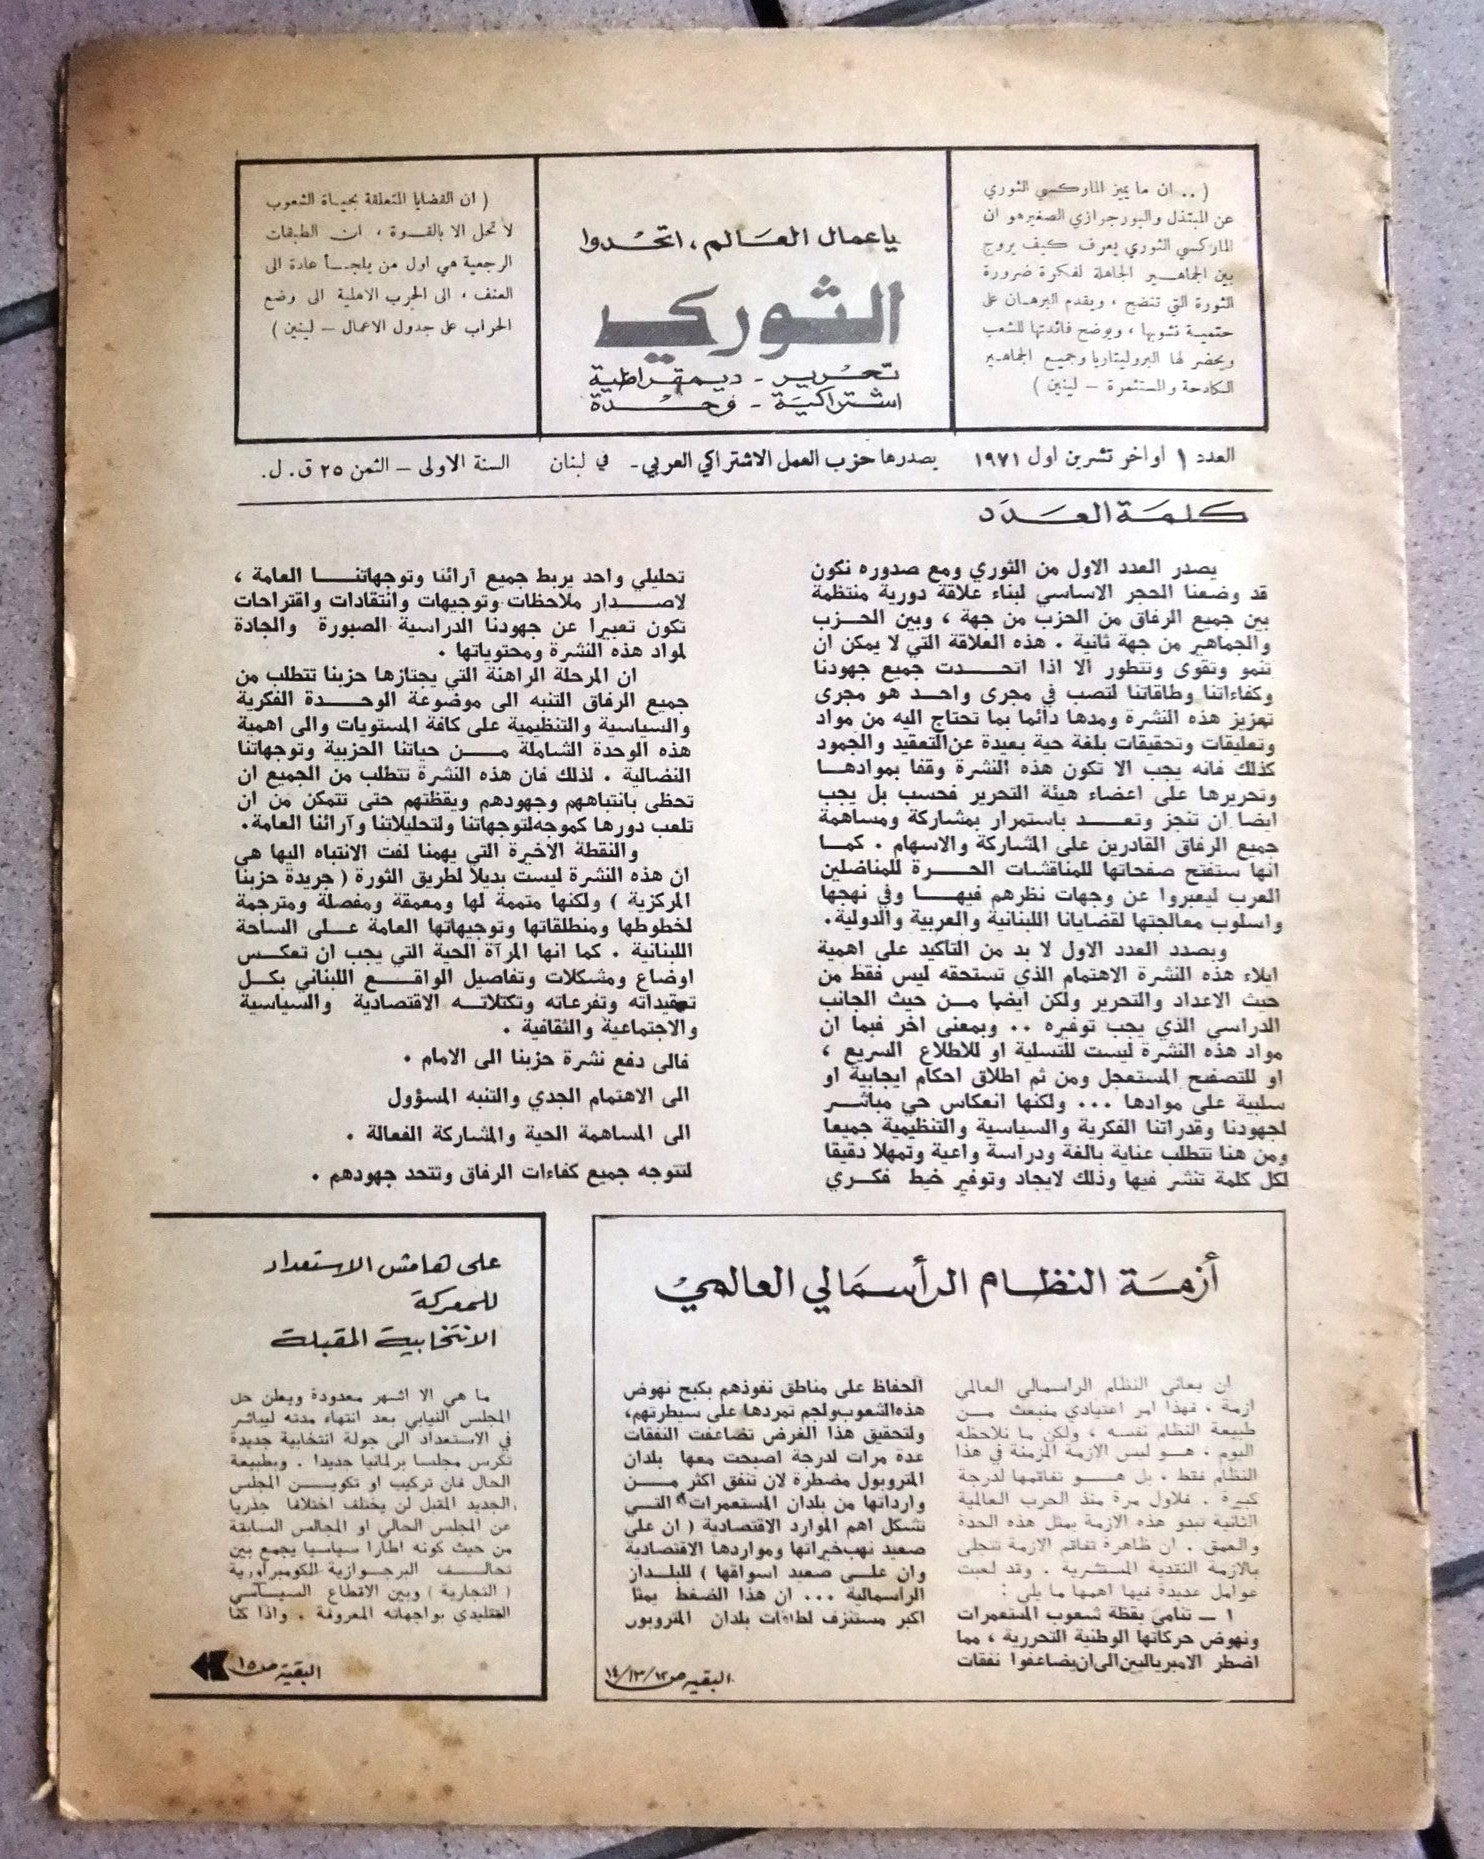 ( .. ان ما يميز الماركسي الثوري
عن المبتذل والبورجوازي الصغير هو ان
الماركسي الثوري يعرف كيف يروج
بين الجماهير الجاهلة لفكرة ضرورة
الثورة التي تنضج ، ويقدم البرهان على
حتمية نشوبها ، ويوضح فائدتها للشعب
ويحضر لها البروليتاريا وجميع الجماهير
الكادحة والمستثمرة – لينين )
ياعمال العالم، اتحدوا
الثوري
تحرير - ديمقراطية
اشتراكية - وحدة
( ان القضايا المتعلقة بحياة الشعوب
لا تحل الا بالقوة ، ان الطبقات
الرجعية هي اول من يلجأ عادة الى
العنف ، الى الحرب الاهلية الى وضع
الحراب على جدول الاعمال – لينين )
العدد ١ اواخر تشرين اول ١٩٧١ يصدرها حزب العمل الاشتراكي العربي - في لبنان السنة الاولى – الثمن ٢٥ ق.ل.
كلمة العدد
يصدر العدد الاول من الثوري ومع صدوره نكون
قد وضعنا الحجر الاساسي لبناء علاقة دورية منتظمة
بين جميع الرفاق من الحزب من جهة ، وبين الحزب
والجماهير من جهة ثانية . هذه العلاقة التي لا يمكن ان
تنمو وتقوى وتتطور الا اذا اتحدت جميع جهودنا
وكفاءاتنا وطاقاتنا لتصب في مجرى واحد هو مجرى
تعزيز هذه النشرة ومدها دائما بما تحتاج اليه من مواد
وتعليقات وتحقيقات بلغة حية بعيدة عن التعقيد والجمود
كذلك فانه يجب الا تكون هذه النشرة وقفا بموادها
وتحريرها على اعضاء هيئة التحرير فحسب بل يجب
ايضا ان تنجز وتعد باستمرار بمشاركة ومساهمة
جميع الرفاق القادرين على المشاركة والاسهام . كما
انها ستفتح صفحاتها للمناقشات الحرة للمناضلين
العرب ليعبروا عن وجهات نظرهم فيها وفي نهجها
واسلوب معالجتها لقضايانا اللبنانية والعربية والدولية.
وبصدد العدد الاول لا بد من التأكيد على اهمية
ايلاء هذه النشرة الاهتمام الذي تستحقه ليس فقط من
حيث الاعداد والتحرير ولكن ايضا من حيث الجانب
الدراسي الذي يجب توفيره .. وبمعنى اخر فيما ان
مواد هذه النشرة ليست للتسلية او للاطلاع السريع ،
او للتصفيح المستعجل ومن ثم اطلاق احكام ايجابية او
سلبية على موادها ... ولكنها انعكاس حي مباشر
لجهودنا وقدراتنا الفكرية والسياسية والتنظيمية جميعا
ومن هنا تتطلب عناية بالغة ودراسة واعية وتمهلا دقيقا
لكل كلمة تنشر فيها وذلك لايجاد وتوفير خيط فكري
تحليلي واحد يربط جميع آرائنا وتوجهاتنا العامة ،
لاصدار ملاحظات وتوجيهات وانتقادات واقتراحات
تكون تعبيرا عن جهودنا الدراسية الصبورة والجادة
لمواد هذه النشرة ومحتوياتها .
ان المرحلة الراهنة التي يجتازها حزبنا تتطلب من
جميع الرفاق التنبه الى موضوعة الوحدة الفكرية
والسياسية والتنظيمية على كافة المستويات والى اهمية
هذه الوحدة الشاملة من حياتنا الحزبية وتوجهاتنا
النضالية . لذلك فان هذه النشرة تتطلب من الجميع ان
تحظى بانتباههم وجهودهم ويقظتهم حتى تتمكن من ان
تلعب دورها كموجه لتوجهاتنا ولتحليلاتنا وآرائنا العامة.
والنقطة الاخيرة التي يهمنا لفت الانتباه اليها هي
ان هذه النشرة ليست بديلا لطريق الثورة ( جريدة حزبنا
المركزية ) ولكنها متممة لها ومعمقة ومفصلة ومترجمة
لخطوطها ومنطلقاتها وتوجيهاتها العامة على الساحة
اللبنانية . كما انها المرآة الحية التي يجب ان تعكس
اوضاع ومشكلات وتفاصيل الواقع اللبناني بكل
تعقيداته وتفرعاته وتكتلاته الاقتصادية والسياسية
والاجتماعية والثقافية .
فالى دفع نشرة حزبنا الى الامام .
الى الاهتمام الجدي والتنبه المسؤول
الى المساهمة الحية والمشاركة الفعالة .
لتتوجه جميع كفاءات الرفاق وتتحد جهودهم .
أزمة النظام الرأسمالي العالمي
ان يعاني النظام الراسمالي العالمي
ازمة ، فهذا امر اعتيادي منبعث من
طبيعة النظام نفسه ، ولكن ما نلاحظه
اليوم . هو ليس الازمة المزمنة في هذا
النظام فقط ، بل هو تفاقمها لدرجة
كبيرة . فلاول مرة منذ الحرب العالمية
الثانية تبدو هذه الازمة بمثل هذه الحدة
والعمق . ان ظاهرة تفاقم الازمة تتجلى
بالازمة النقدية المستشرية . وقد لعبت
عوامل عديدة فيها اهمها ما يلي :
١ – تنامي يقظة شعوب المستعمرات
ونهوض حركاتها الوطنية التحررية ، مما
اضطر الامبرياليين الى ان يضاعفوا نفقات
الحفاظ على مناطق نفوذهم بكبح نهوض
هذه الشعوب ولجم تمردها على سيطرتهم،
ولتحقيق هذا الغرض تضاعفت النفقات
عدة مرات لدرجة اصبحت معها بلدان
المتروبول مضطرة لان تنفق اكثر من
وارداتها من بلدان المستعمرات التي
تشكل اهم الموارد الاقتصادية ( ان على
صعيد نهب خيراتها ومواردها الاقتصادية
وان على صعيد اسواقها ) للبلدان
الراسمالية ... ان هذا الضغط يمثل
اكبر مستنزف لطاقات بلدان المتروبول
البقية ص ١٢/١٣/١٤
على هامش الاستعداد
للمعركة
الانتخابية المقبلة
ما هي الا اشهر معدودة ويعلن حل
المجلس النيابي بعد انتهاء مدته ليباشر
في الاستعداد الى جولة انتخابية جديدة
تكرس مجلسا برلمانيا جديدا . وبطبيعة
الحال فان تركيب او تكوين المجلس
الجديد المقبل لن يختلف اختلافا جذريا
عن المجلس الحالي او المجالس السابقة
من حيث كونه اطارا سياسيا يجمع بين
تحالف البرجوازية الكومبرادورية
( التجارية ) وبين الاقطاع السياسي
التقليدي بواجهاته المعروفة . واذا كنا
البقية ص ١٥